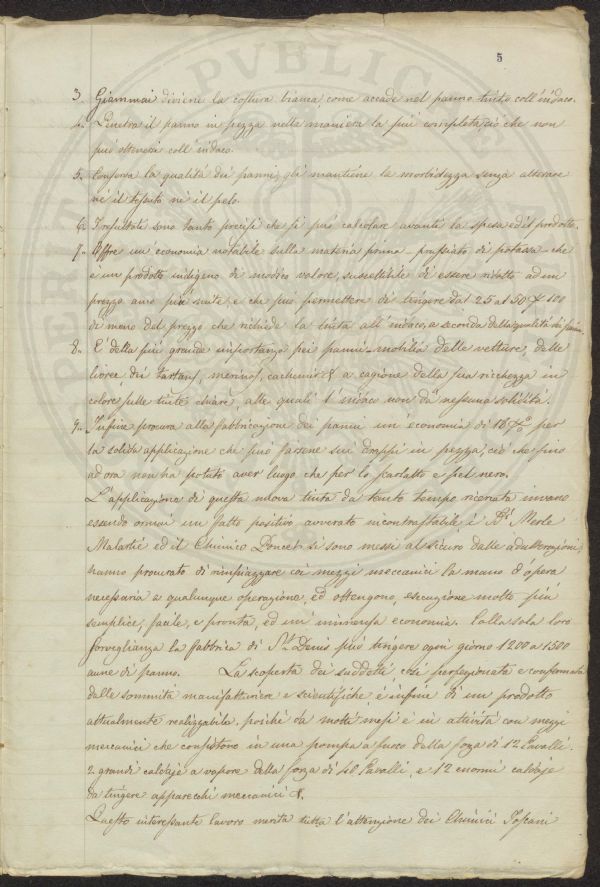 5
3. Giammai diviene la costura bianca, come accade nel panno tinto coll' indaco.
4. Penetra il panno in pezza nella maniera la più completa, ciò che non
può ottenersi coll' indaco.
5. Conserva la qualità dei panni, gli mantiene la morbidezza senza alterare
nè il tessuto nè il pelo.
6. I resultati sono tanto precisi che si può calcolare avanti la spesa ed il prodotto.
7. Offre un' economia notabile sulla materia prima prussiato di potassa che
è un prodotto indigeno di modico valore, suscettibile di essere ridotto ad un
prezzo anco più mite e che può permettere di tingere dal 25 al 50 p 100
di meno del prezzo che richiede la tinta all' indaco, a seconda della qualità dei panni.
8. È della più grande importanza pei panni-mobilia delle vetture, delle
livree, dei tartans, merinos, cachemir & a cagione della sua ricchezza in
colore sulle tinte chiare, alle quali l' indaco non dà nessuna solidità.
9. Infine procura alla fabbricazione dei panni un' economia di 18 p% per
la solida applicazione che può farsene sui drappi in pezza, ciò che fino
ad ora non ha potuto aver luogo che per lo scarlatto e pel nero.
L' applicazione di questa nuova tinta da tanto tempo ricercata invano
essendo ormai un fatto positivo, avverato incontrastabile, i Merle
Malartié ed il Chimico Poncet si sono messi al sicuro dalle adulterazioni,
hanno procurato di rimpiazzare coi mezzi meccanici la mano d' opera
necessaria a qualunque operazione, ed ottengono, esecuzione molto più
semplice, facile, e pronta, ed un' immensa economia. Colla sola loro
sorveglianza la fabbrica di St. Denis può tingere ogni giorno 1200 a 1500
aune di panno. La scoperta dei suddetti, così perfezionata e confermata
dalle sommità manifatturiere e scientifiche, è infine di un prodotto
attualmente realizzabile, poichè da molti mesi è in attività con mezzi
meccanici che consistono in una pompa a fuoco della forza di 12 Cavalli.
2 grandi caldaje a vapore della forza di 40 Cavalli, e 12 enormi caldaje
da tingere apparecchi meccanici &.
Questo interessante lavoro merita tutta l' attenzione dei Chimici Toscani